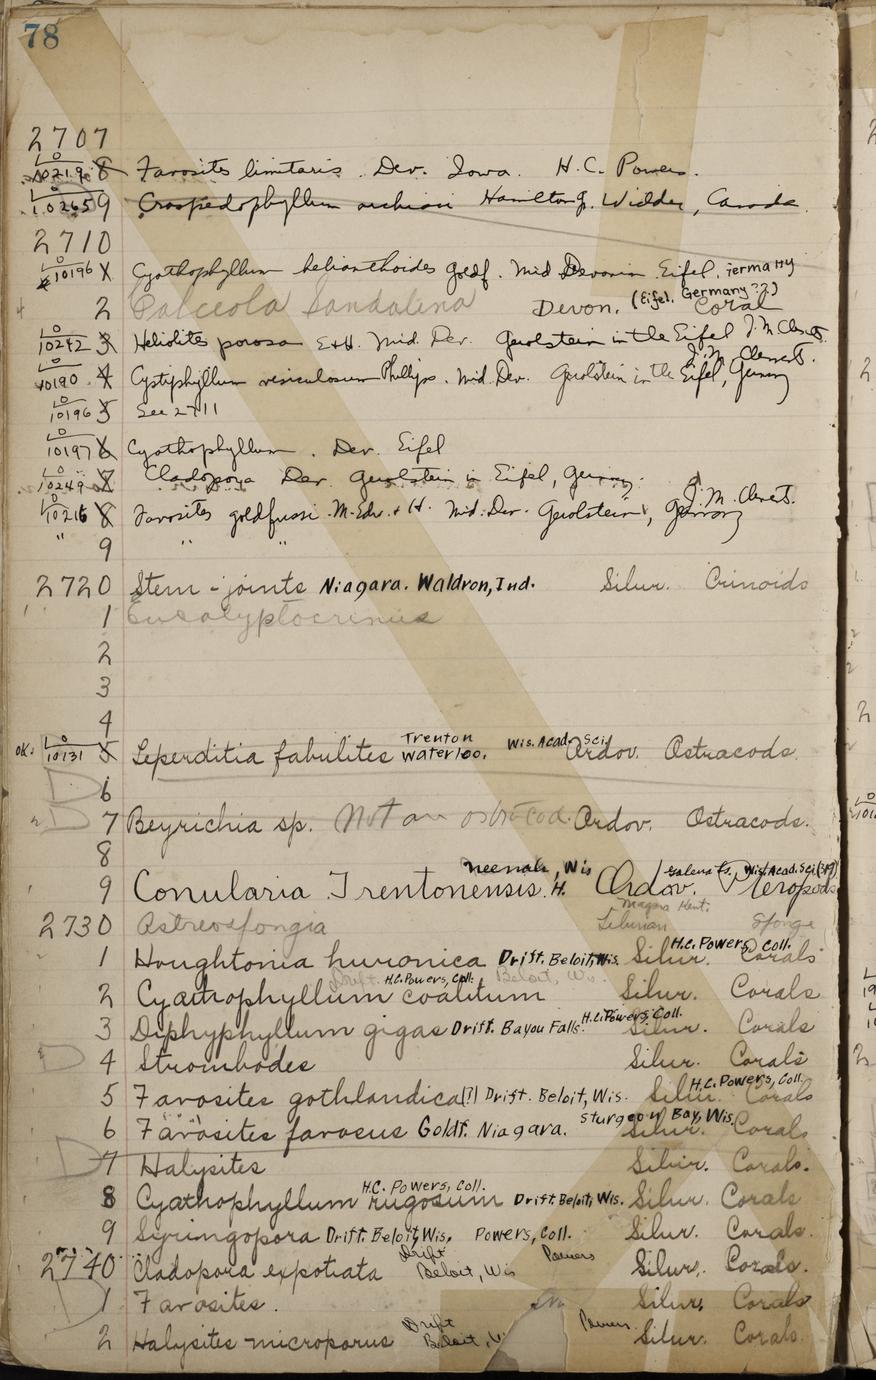 78
2707
LO 10219 8 Favosites limitaris. Dev. Iowa. H.C. Powers.
LO 10265 9 Craspedophyllum archiaci Hamilton g. Widder, Canada
2710
LO 10196 X Cyathophyllum helianthoides Goldf. Mid Devonian Eifel, Germany
2 Calceola Sandalina Devon. (Eifel, Germany ??) Coral
LO 10242 3 Heliolites porosa E+H. Mid. Dev. Gerolstein in the Eifel J.M. Clement.
LO 10190 4 Cystiphyllum vesiculosum Phillips. Mid. Dev. Gerolstein in the Eifel, Germany J.M. Clement.
LO 10196 5 See 2711
LO 10197 6 Cyathophyllum. Dev. Eifel
LO 10249 7 Cladopora Dev. Gerolstein in Eifel, Germany.
LO 10216 8 Favosites goldfussi M-Edw. + H. Mid. Dev. Gerolstein, Germany J.M. Clement.
" 9 " "
2720 Stem-joints Niagara. Waldron, Ind. Silur. Crinoids
1 Eucalyptocrinus
2
3
4
OK. LO 10131 5 Leperditia fabulites Trenton Waterloo. Wis. Acad. Sci. Ordov. Ostracods.
D 6
D 7 Beyrichia sp. Not an ostracod. Ordov. Ostracods.
8
9 Conularia Trentonensis. H. Neenah, Wis Ordov. Galena ls. Wis. Acad. Sci (349) Pteropods
2730 Astreospongia Niagara Kent. Silurian Sponge
1 Houghtonia huronica Drift. Beloit, Wis. Silur. H.C. Powers Coll. Corals
2 Cyathophyllum coalitum Drift. H.C. Powers, Coll. Beloit, Wis. Silur. Corals
3 Diphyphyllum gigas Drift. Bayou Falls. H.C. Powers, Coll. Silur. Corals
D 4 Strombodes Silur. Corals
5 Favosites gothlandica (?) Drift. Beloit, Wis. Silur. H.C. Powers, Coll. Corals
6 Favosites favosus Goldf. Niagara. Sturgeon Bay, Wis. Silur. Corals
D 7 Halysites Silur. Corals.
8 Cyathophyllum rugosum H.C. Powers, Coll. Drift Beloit, Wis. Silur. Corals
9 Syringopora Drift. Beloit, Wis. Powers, Coll. Silur. Corals.
2740 Cladopora expotiata Drift Beloit, Wis Powers Silur. Corals.
1 Favosites. Silur. Corals
2 Halysites microporus Drift Beloit, Powers. Silur. Corals.